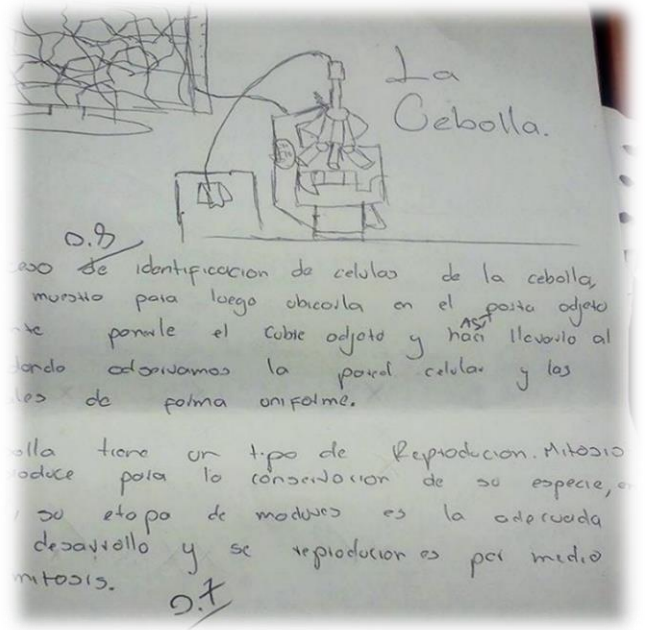 La
Cebolla.
0.8
eso de identificacion de celulas de la cebolla,
muestro para luego ubicarla en el porta odjeto
te ponerle el cubre odjeto y hací AST llevarlo al
dondo odservamos la pared celular y las
les de forma uniforme.
olla tiene un tipo de Reproducion. Mitosis
oduce para la conservacion de su especie, en
su etapa de madures es la adecuada
desarrollo y se reproducion es por medio
mitosis.
0.7